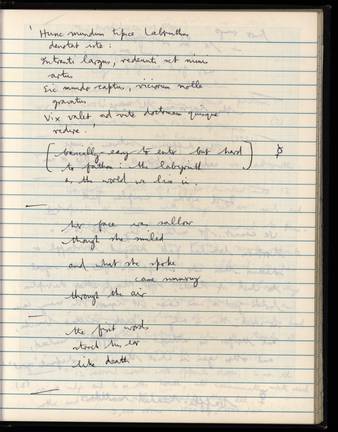 ' Hunc mundum tipice Labrinthus
denotat iste:
Intranti largus, redeunti set nimis
artus
Sic mundo captus, viciorum molle
gravatus
Vix valet ad vite doctrinam quisque
redire. '
[ basically - easy to enter but hard
to fathom: the labyrinth
is the world we live in. ]
her face was sallow
though she smiled
and what she spoke
came
through the air
the first words
his ear
like death